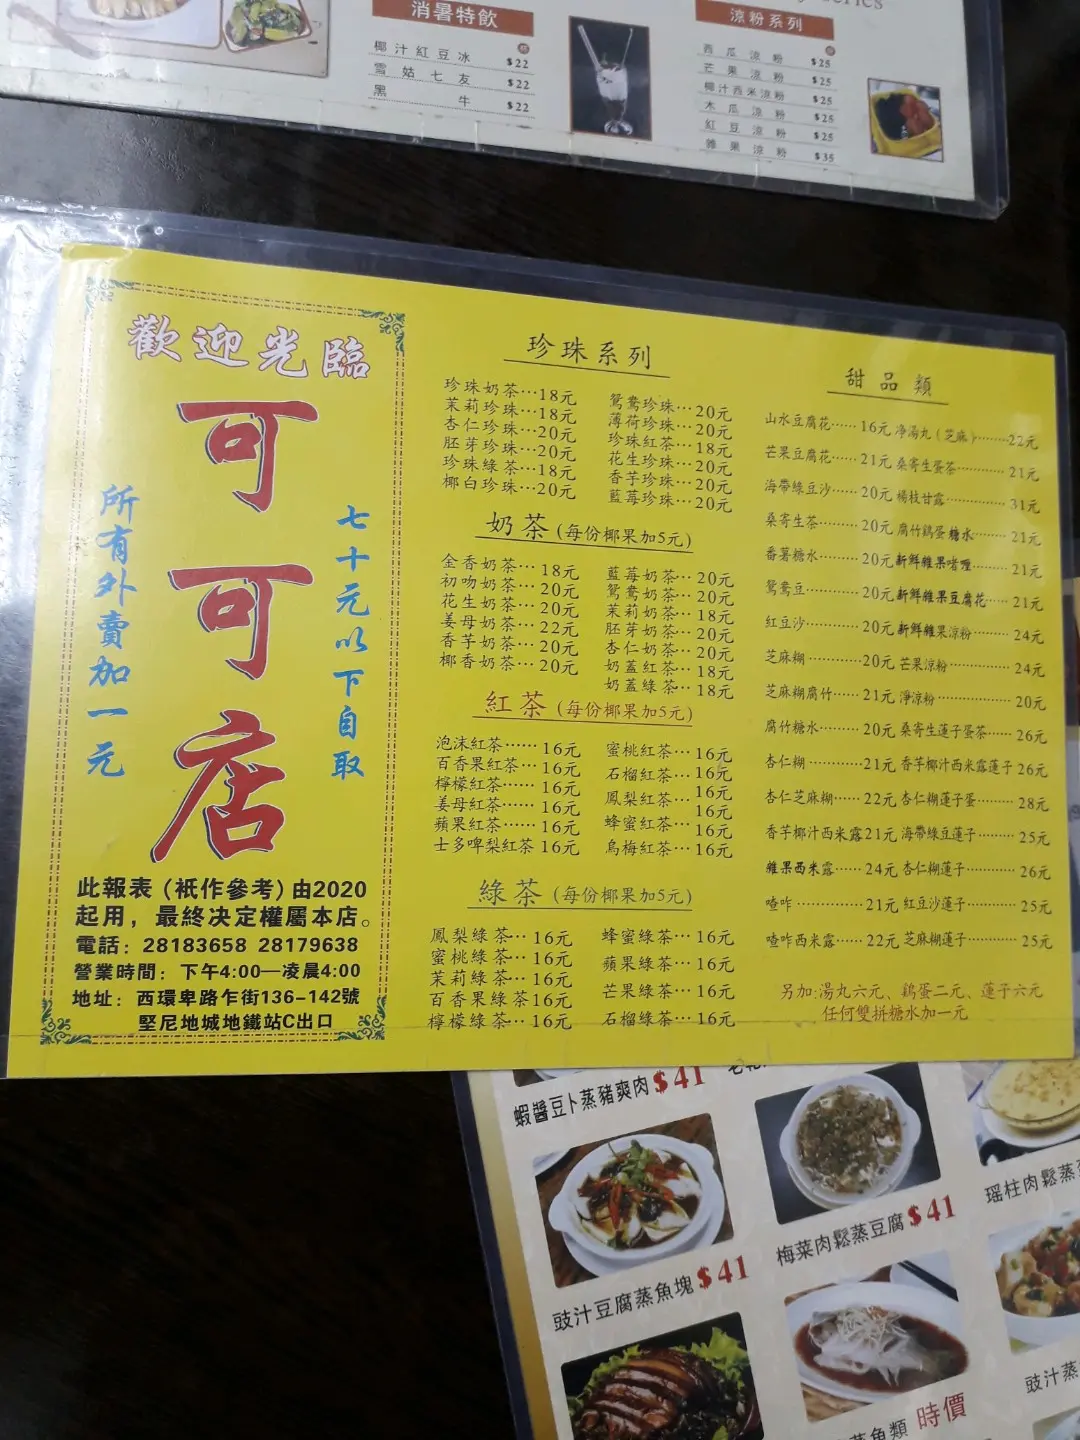 消暑特飲
椰汁紅豆冰 $22
雪姑七友 $22
黑牛 $22
涼粉系列
西瓜涼粉 $25
芒果涼粉 $25
椰汁西米涼粉 $25
木瓜涼粉 $25
紅豆涼粉 $25
雜果涼粉 $35
歡迎光臨
可可店
所有外賣加一元
七十元以下自取
此報表（衹作參考)由2020
起用，最終决定權屬本店。
電話：28183658 28179638
營業時間：下午4:00—凌晨4:00
地址：西環卑路乍街136-142號
堅尼地城地鐵站C出口
珍珠系列
珍珠奶茶…18元
茉莉珍珠…18元
杏仁珍珠…20元
胚芽珍珠…20元
珍珠綠茶…18元
椰白珍珠…20元
鴛鴦珍珠…20元
薄荷珍珠…20元
珍珠紅茶…18元
花生珍珠…20元
香芋珍珠…20元
藍莓珍珠…20元
奶茶(每份椰果加5元)
金香奶茶…18元
初吻奶茶…20元
花生奶茶…20元
姜母奶茶…22元
香芋奶茶…20元
椰香奶茶…20元
藍莓奶茶…20元
鴛鴦奶茶…20元
茉莉奶茶…18元
胚芽奶茶…20元
杏仁奶茶…20元
奶蓋紅茶…18元
奶蓋綠茶…18元
紅茶(每份椰果加5元)
泡沫紅茶……16元
百香果紅茶…16元
檸檬紅茶……16元
姜母紅茶……16元
蘋果紅茶……16元
士多啤梨紅茶 16元
蜜桃紅茶…16元
石榴紅茶…16元
鳳梨紅茶…16元
蜂蜜紅茶…16元
烏梅紅茶…16元
綠茶(每份椰果加5元)
鳳梨綠茶…16元
蜜桃綠茶…16元
茉莉綠茶…16元
百香果綠茶16元
檸檬綠茶…16元
蜂蜜綠茶…16元
蘋果綠茶…16元
芒果綠茶…16元
石榴綠茶…16元
甜品類
山水豆腐花……16元 净湯丸(芝麻)………22元
芒果豆腐花……21元 桑寄生蛋茶…………21元
海帶綠豆沙……20元 楊枝甘露……………31元
桑寄生茶………20元 腐竹鷄蛋糖水………21元
番薯糖水………20元 新鮮雜果啫喱………21元
鴛鴦豆…………20元 新鮮雜果豆腐花……21元
紅豆沙…………20元 新鮮雜果涼粉………24元
芝麻糊…………20元 芒果涼粉……………24元
芝麻糊腐竹……21元 淨涼粉………………20元
腐竹糖水………20元 桑寄生蓮子蛋茶……26元
杏仁糊…………21元 香芋椰汁西米露蓮子26元
杏仁芝麻糊……22元 杏仁糊蓮子蛋………28元
香芋椰汁西米露21元 海帶綠豆蓮子………25元
雜果西米露……24元 杏仁糊蓮子…………26元
喳咋……………21元 紅豆沙蓮子…………25元
喳咋西米露……22元 芝麻糊蓮子…………25元
另加:湯丸六元、鷄蛋二元、蓮子六元
任何雙拼糖水加一元
蝦醬豆卜蒸豬爽肉 $41
豉汁豆腐蒸魚塊 $41
梅菜肉鬆蒸豆腐 $41
瑶柱肉鬆蒸
豉汁蒸
蒸魚類 時價